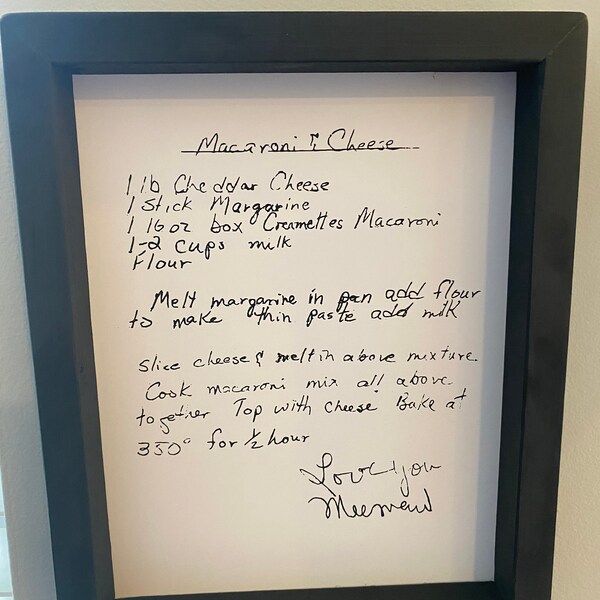 Macaroni & Cheese
1 lb Cheddar Cheese
1 Stick Margarine
1 16oz box Creamettes Macaroni
1-2 cups milk
Flour
Melt margarine in pan add flour
to make thin paste add milk
Slice cheese & melt in above mixture
Cook macaroni mix all above
together Top with cheese Bake at
350° for ½ hour
Love you